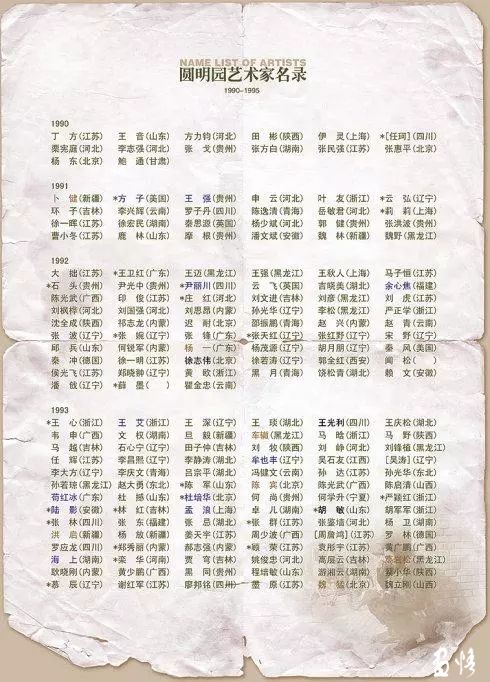 NAME LIST OF ARTISTS
圆明园艺术家名录
1990-1995
1990
丁 方(江苏) 王 音(山东) 方力钧(河北) 田 彬(陕西) 伊 灵(上海) *[任珂](四川)
栗宪庭(河北) 李志强(河北) 张 戈(贵州) 张方白(湖南) 张民强(江苏) 张惠平(北京)
杨 东(北京) 鲍 通(甘肃)
1991
卜 健(新疆) *方 子(美国) 王 强(贵州) 申 云(河北) 叶 友(浙江) *云 弘(辽宁)
环 子(吉林) 李兴辉(云南) 罗子丹(四川) 陈逸清(青海) 岳敏君(河北) *莉 莉(上海)
徐一晖(江苏) 徐宏民(湖南) 秦思源(英国) 杨少斌(河北) 郭 健(贵州) 张洪波(贵州)
曹小冬(江苏) 鹿 林(山东) 摩 根(贵州) 潘文斌(安徽) 魏 林(新疆) 魏野(黑龙江)
1992
大 拙(江苏) *王卫红(广东) 王迈(黑龙江) 王强(黑龙江) 王秋人(上海) 马子恒(江苏)
*石 头(贵州) 尹光中(贵州) *尹丽川(四川) 云 飞(英国) 吉晓美(湖北) 余心焦(福建)
陈光武(广西) 印 俊(江苏) *庄 红(河北) 刘文进(吉林) 刘彦(黑龙江) 刘 虎(江苏)
刘枫桦(河北) 刘国强(河北) 刘思昂(内蒙) 孙光华(辽宁) 李松(黑龙江) 严正学(浙江)
沈全成(陕西) 祁志龙(内蒙) 迟 耐(北京) 邵振鹏(青海) 赵 兴(内蒙) 赵 青(云南)
张 波(辽宁) *张 婉(辽宁) 张 锋(广东) *张天红(辽宁) 张红野(辽宁) 宋 野(辽宁)
邱 兵(山东) 何锐军(内蒙) 杨 一(广东) 杨茂源(辽宁) 胡月朋(辽宁) 秦 风(美国)
秦 冲(德国) 徐一明(江苏) 徐志伟(北京) 徐若涛(辽宁) 郭金全(西安) 闻 松( )
侯光飞(江苏) 郑晓翀(辽宁) 黄 欧(浙江) 黑 月(青海) 饶松青(湖北) 赖 文(安徽)
潘 戗(辽宁) *薛 墨( ) 瞿金忠(云南)
1993
*王 心(浙江) 王 艾(浙江) 王 深(辽宁) 王 琰(湖北) 王光利(四川) 王庆松(湖北)
韦 申(广西) 文 权(湖南) 旦 毅(新疆) 车磁(黑龙江) 马 晗(浙江) 马 野(陕西)
马 越(吉林) 石心宁(辽宁) 田子仲(吉林) 刘 牧(陕西) 刘 峥(河北) 刘锋植(黑龙江)
任 辉(江苏) 李昌熙(辽宁) 李静涛(湖北) 牟也丰(辽宁) 吴石友(江西) [吴涛](辽宁)
李大方(辽宁) 李庆文(青海) 吕宗平(湖北) 冯健文(云南) 孙 达(江苏) 孙光华(东北)
孙若琼(黑龙江) 赵大勇(东北) *陈 军(山东) 陈 宾(北京) 陈光武(广西) 陈启清(山西)
苟红冰(广东) 杜 撼(山东) *杜培华(北京) 何 尚(贵州) 何学升(宁夏) *严颖红(浙江)
*陆 影(安徽) *林 红(吉林) 孟 浪(上海) 卓 儿(湖南) *胡 敏(山东) 胡军军(浙江)
*张 林(四川) 张 东(福建) 张 忌(湖北) *张 群(江苏) 张鉴墙(河北) 杨 卫(湖南)
洪 启(新疆) 杨 放(新疆) 姜天宇(江苏) 周少波(广西) [周詹鸿](江苏) 罗 林(德国)
罗应龙(四川) *郑秀丽(内蒙) 郝志强(内蒙) *顾 荣(江苏) 袁彤宇(江苏) 黄广鹏(广西)
海 上(湖南) *栾 华(河南) 贾 穹(吉林) 姚俊忠(河北) 高层云(吉林) (黑龙江)
耿晓刚(内蒙) 黄少鹏(广西) 黑 冈(贵州) 程培敏(山东) 游湘云(湖南) 蔡小华(陕西)
*慕 辰(辽宁) 谢红军(江苏) 廖邦铭(四川) 曌 原(江苏) (北京) 魏立刚(山西)